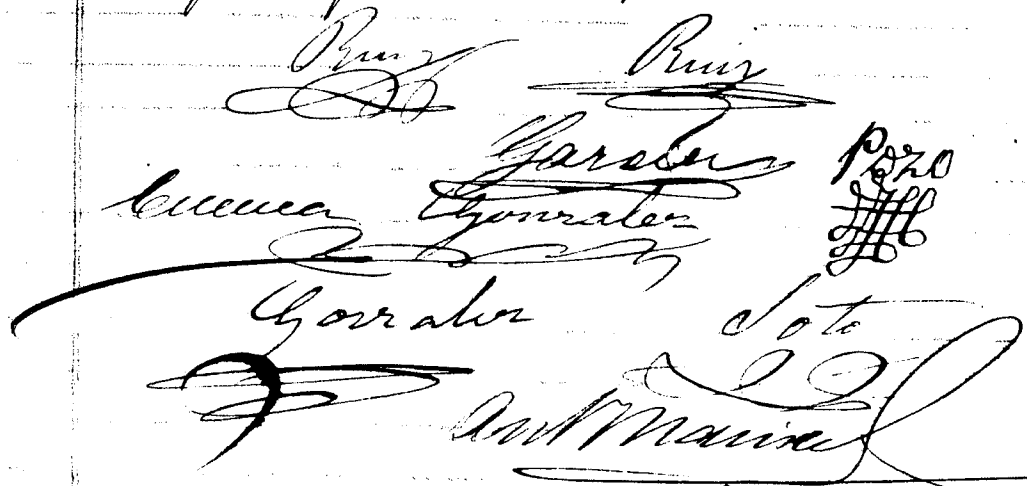 Ruiz Ruiz
Garcia Pozo
Cuenca Gonzalez
Gonzalez Soto
Ant